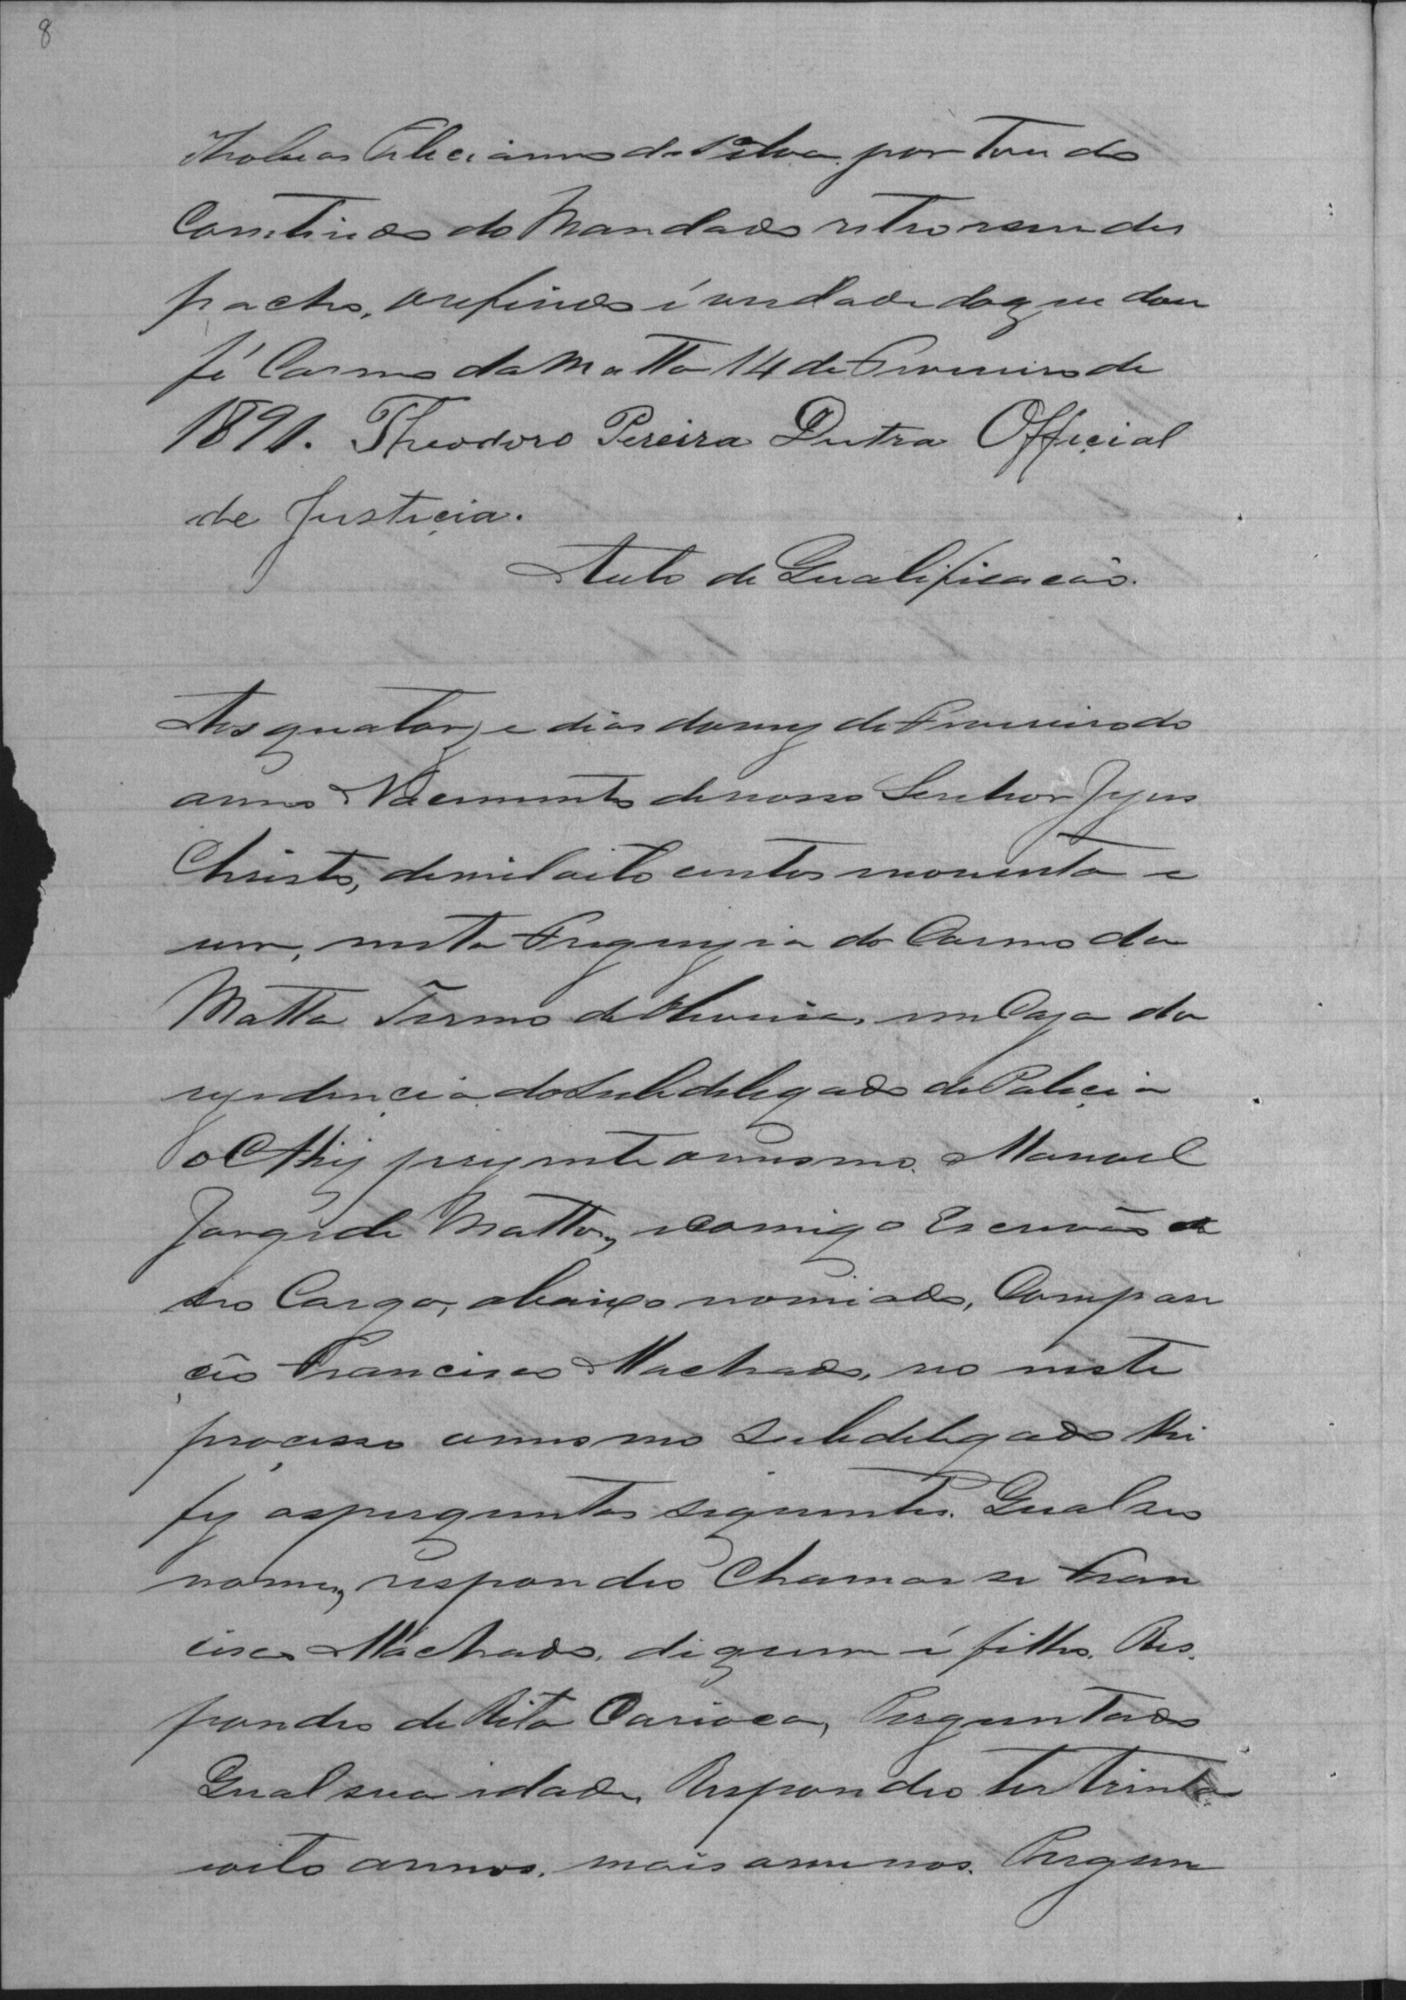 8
Felicianno da Silva por todo
Contiudo do Mandado retro e seu des
pacho, o refirido é verdade do que dou
fé Carmo da Matta 14 de Fevereiro de
1891. Theodoro Pereira Dutra Official
de Justicia.
Auto de Qualificacão.
Aos quatorze dias do mez de Fevereiro do
anno Nacemento de nosso Senhor Jezus
Christo, de mil oito centos noventa e
um, nesta Freguezia do Carmo da
Matta Termo de Oliveira, em Caza da
rezidencia do Subdelegado de Policia
o Cid.
Jorge de Mattos, comigo Escrivão de
seo Cargo, abaixo nomiado, Compare
ceo Francisco Machado, reo neste
processo o mesmo Subdelegado lhe
fez as perguntas siguintes. Qual seo
nome, respondeo Chamar se Fran
cisco Machado, de quem é filho. Res
pondeo de Rita Carioca, Perguntado
Qual sua idade, Respondeo ter trinta
e oito annos, mais a menos. Pergun